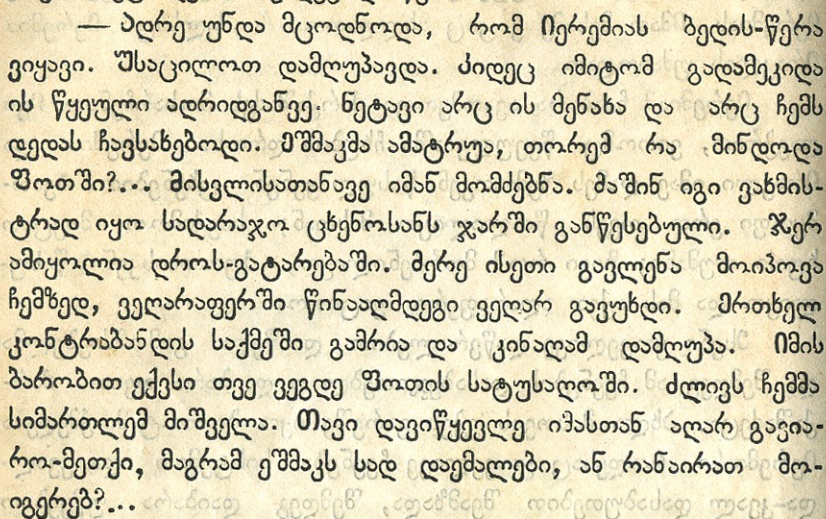 — ადრე უნდა მცოდნოდა, რომ იერემიას ბედის-წერა
ვიყავი. უსაცილოთ დამღუპავდა. კიდეც იმიტომ გადამეკიდა
ის წყეული ადრიდგანვე. ნეტავი არც ის მენახა და არც ჩემს
დედას ჩავსახებოდი. ეშმაკმა ამატრუა, თორემ რა მინდოდა
ფოთში?... მისვლისათანავე იმან მომძებნა. მაშინ იგი ვახმის-
ტრად იყო სადარაჯო ცხენოსანს ჯარში განწესებული. ჯერ
ამიყოლია დროს-გატარებაში. მერე ისეთი გავლენა მოიპოვა
ჩემზედ, ვეღარაფერში წინააღმდეგი ვეღარ გავუხდი. ერთხელ
კონტრაბანდის საქმეში გამრია და კინაღამ დამღუპა. იმის
ბარობით ექვსი თვე ვეგდე ფოთის სატუსაღოში. ძლივს ჩემმა
სიმართლემ მიშველა. თავი დავიწყევლე იმასთან აღარ გავია-
რო-მეთქი, მაგრამ ეშმაკს სად დაემალები, ან რანაირათ მო-
იგერებ?...